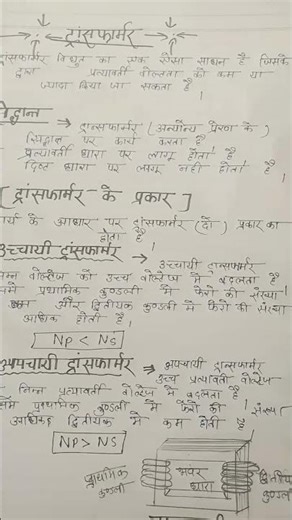 ट्रांसफार्मर
ट्रांसफार्मर विद्युत का एक ऐसा साधन है जिसके
द्वारा प्रत्यावर्ती वोल्टता को कम या
ज्यादा किया जा सकता है
सिद्धान्त → ट्रान्सफार्मर (अन्योन्य प्रेरण के)
सिद्धान्त पर कार्य करता है
प्रत्यावर्ती धारा पर लागू होता है
दिष्ट धारा पर लागू नही होता है
[ट्रांसफार्मर के प्रकार]
कार्य के आधार पर ट्रांसफार्मर (दो) प्रकार का
होता है
उच्चायी ट्रांसफार्मर → उच्चायी ट्रान्सफार्मर
निम्न वोल्टेज को उच्च वोल्टेज में बदलता है
प्राथमिक कुण्डली में फेरो की संख्या
कम और द्वितीयक कुण्डली में फेरो की संख्या
अधिक होती है
NP < NS
अपचायी ट्रांसफार्मर → अपचायी ट्रान्सफार्मर
उच्च प्रत्यावर्ती वोल्टेज
निम्न प्रत्यावर्ती वोल्टेज में बदलता है
प्राथमिक कुण्डली में फेरो की संख्या
अधिक द्वितीयक में कम होती है
NP > NS
प्राथमिक कुण्डली
भवर धारा
द्वितीयक कुण्डली